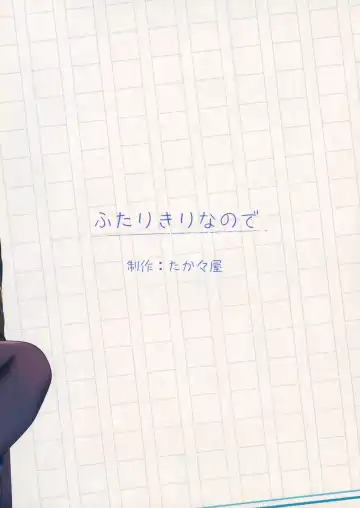 ふたりきりなので
制作：たか々屋